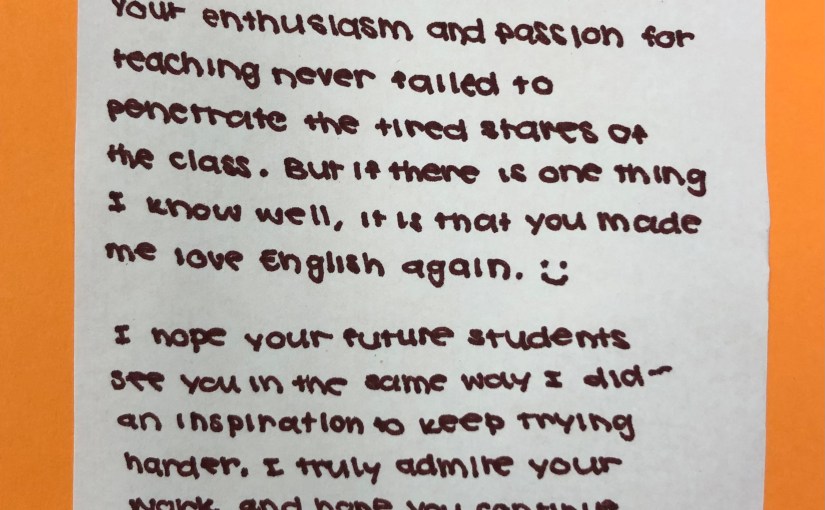 Your enthusiasm and passion for
teaching never failed to
penetrate the tired stares of
the class. But if there is one thing
I know well, it is that you made
me love English again. :)
I hope your future students
see you in the same way I did-
an inspiration to keep trying
harder. I truly admire your
work, and hope you continue